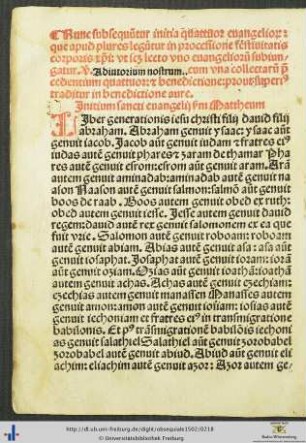 Nunc subsequūtur initia quattuor evangelior: 
que apud plures legūtur in processione festivitatis
corporis xpi: ut lecto uno evangeliorū subiun-
gatur. V. Adiutorium nostrum.. cum una collectarū p
cedentium quattuor: benedictione: prout superi
traditur in benedictione aure.
Initium sancti evangelij sm Mattheum
Liber generationis iesu christi filij david filij
abraham. Abraham genuit ysaac: ysaac aūt
genuit iacob. Jacob aūt genuit iudam et fratres ei
iudas autē genuit phares et zaram de thamar Pha
res autē genuit esrom: esrom aūt genuit aram. Arā
autem genuit aminadab: aminadab autē genuit na
ason Naason autē genuit salmon: salmō aūt genuit
boos de raab. Boos autem genuit obed ex ruth:
obed autem genuit iesse. Jesse autem genuit david
regem: david autē rex genuit salomonem ex ea que
fuit vrie. Salomon autē genuit roboam: roboam
autem genuit abiam. Abias autē genuit asa: asa aūt
genuit iosaphat. Josaphat autē genuit ioram: iorā
aūt genuit oziam. Ozias aūt genuit ioathā: ioathā
autem genuit achas. Achas autē genuit ezechiam:
ezechias autem genuit manassen Manasses autem
genuit amon: amon autē genuit iosiam: iosias autē
genuit iechoniam et fratres ei in transmigratione
babilonis. Et p trāsmigrationē babilōis iechoni
as genuit salathiel Salathiel aūt genuit zorobabel
zorobabel autē genuit abiud. Abiud aūt genuit eli
achim: eliachim autē genuit azor: Azor autem ge-
http://dl.ub.uni-freiburg.de/diglit/obsequiale1502/0218
© Universitätsbibliothek Freiburg